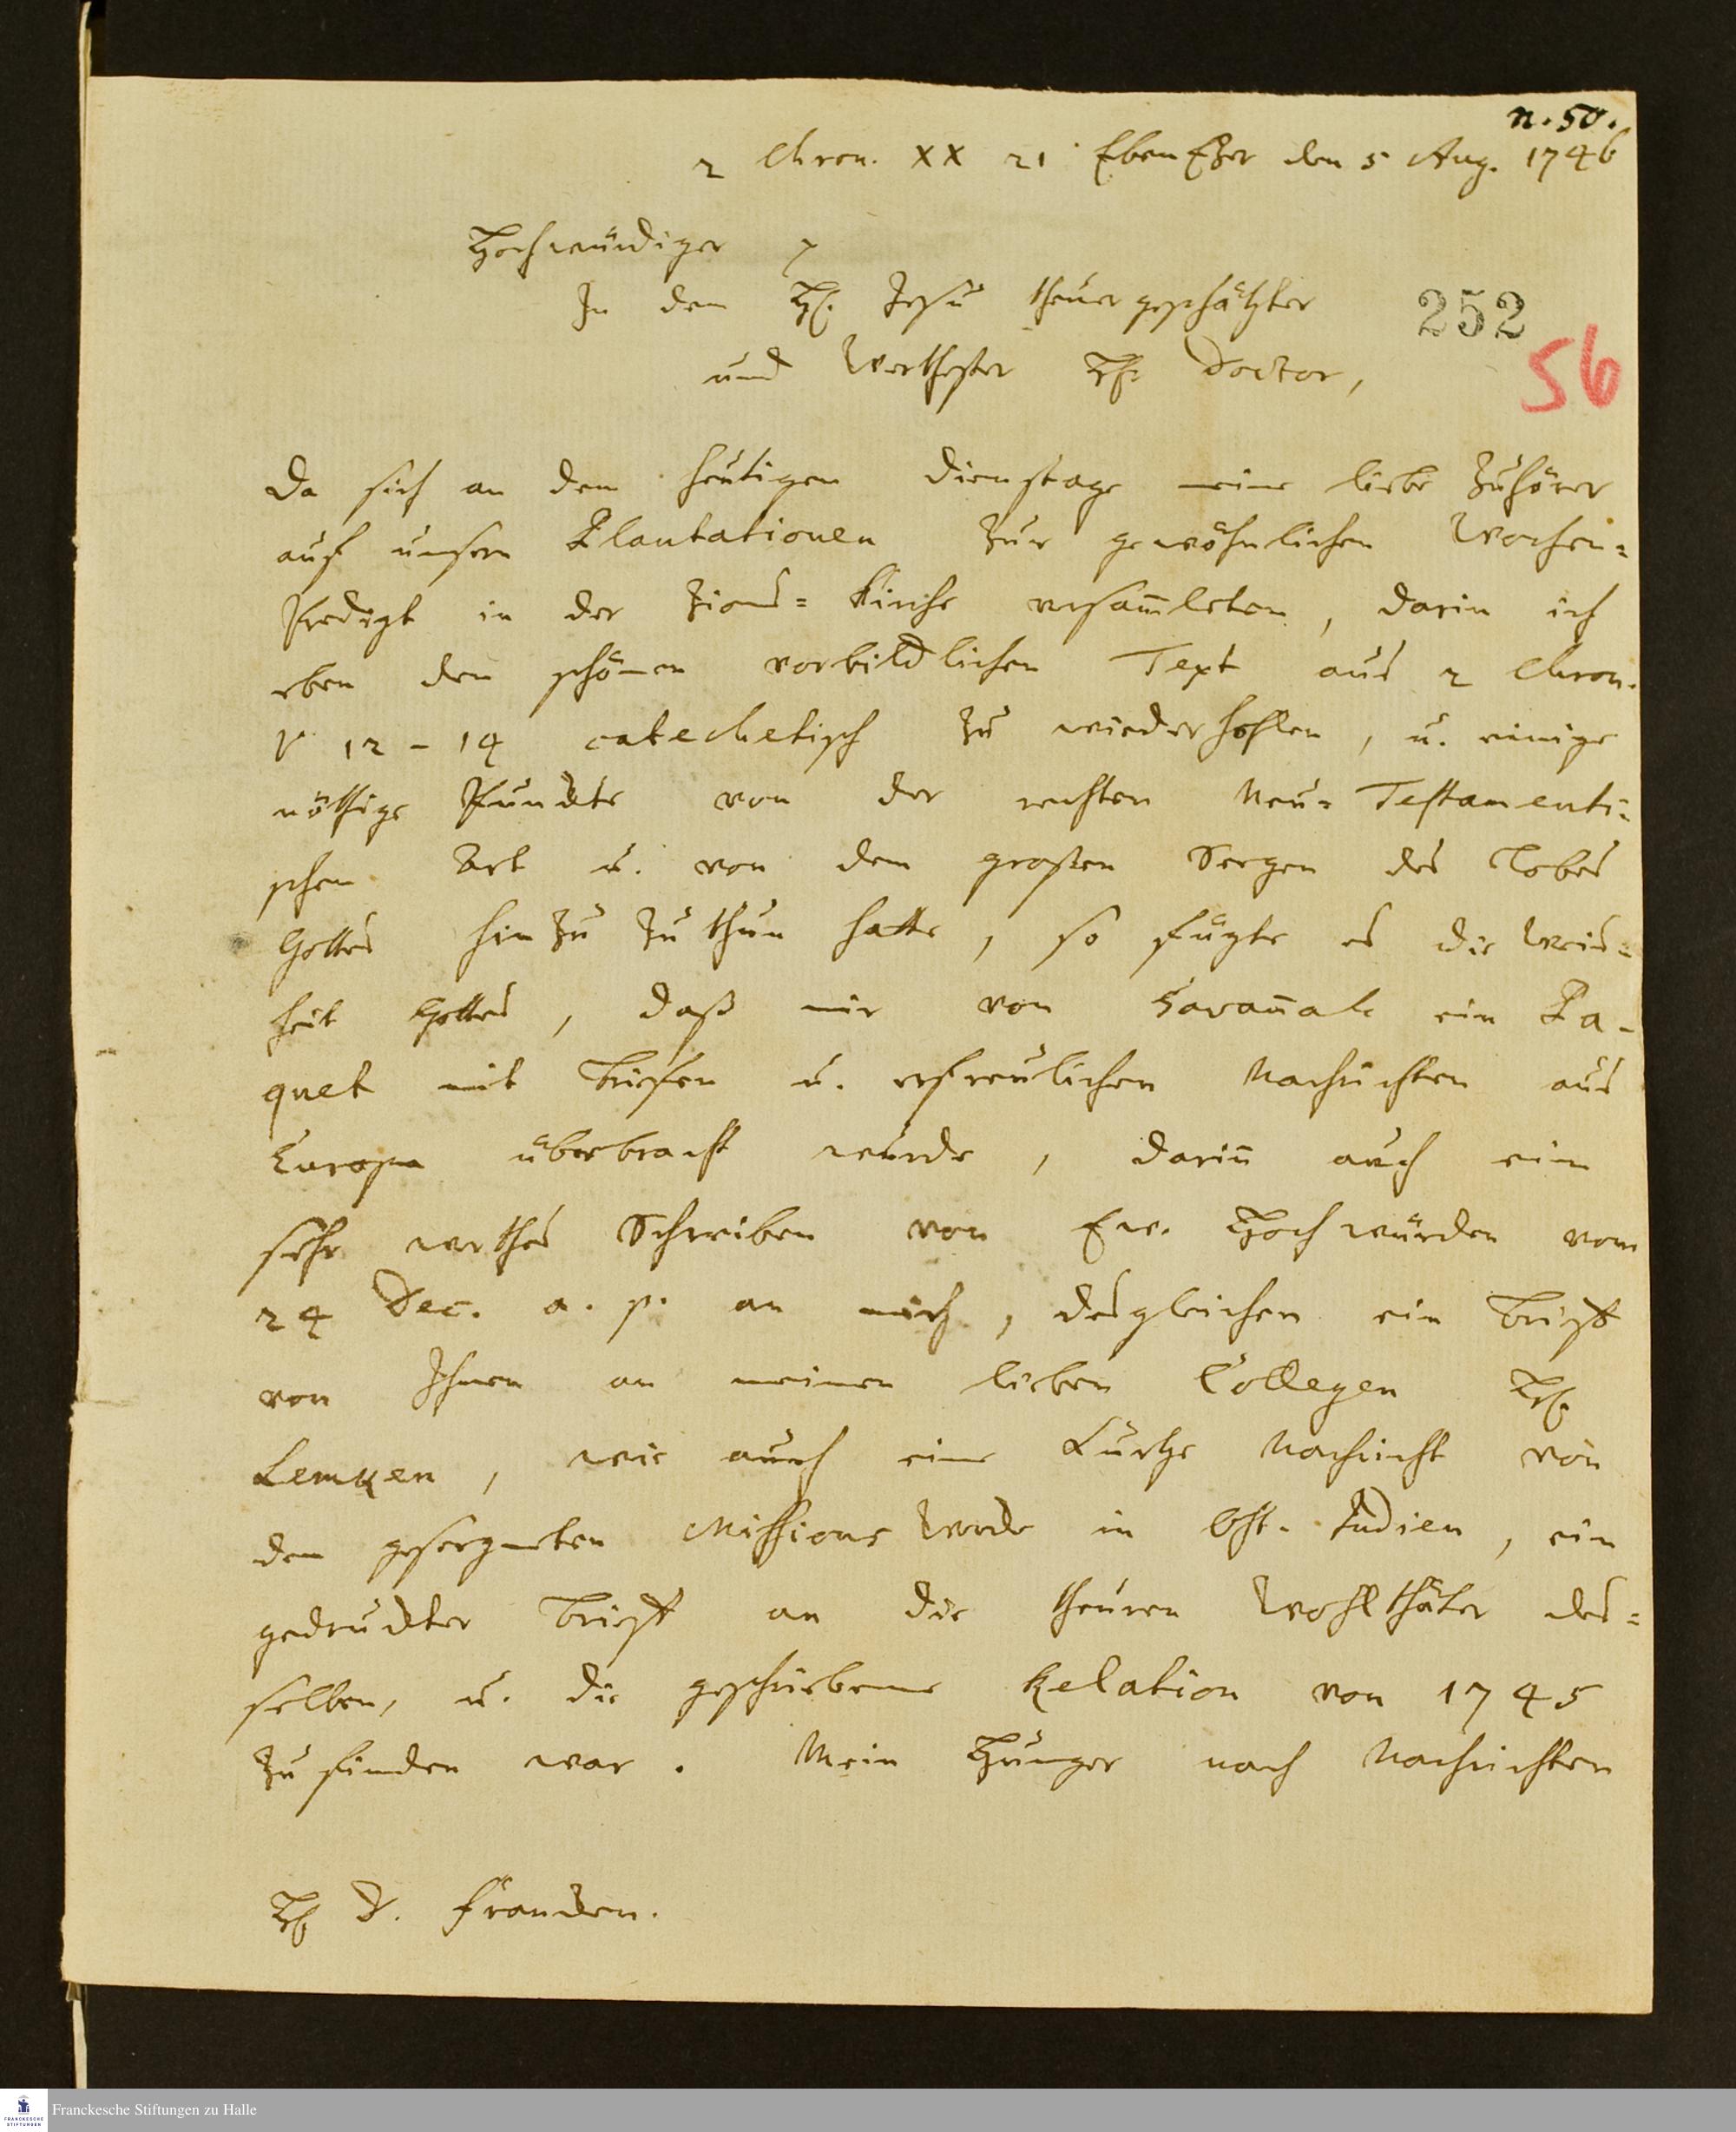 n. 50.
2 Chron. XX 21 EbenEzer den 5 Aug. 1746
Hochwürdiger
In dem H. Jesu theuer geschätzter
252
und Werthester H. Doctor,
56
Da sich an dem heutigen Dienstage meine liebe Zuhörer
auf unsern Plantationen zur gewöhnlichen Wochen=
Predigt in der Zions=Kirche versam̅leten, darin ich
eben den schönen vorbildlichen Text aus 2 Chron.
V 12-14 catechetisch zu wiederhohlen, u. einige
nöthige Puncte von der rechten Neu=Testamenti=
schen Art u. von dem großen Seegen des Lobes
Gottes hinzu zu thun hatte, so fügte es die Weis=
heit Gottes, daß mir von Savan̅ah ein Pa-
quet mit Briefen u. erfreulichen Nachrichten aus
Europa überbracht wurde, darin̅ auch ein
sehr werthes Schreiben von Ew. Hochwürden vom
24 Dec. a. p. an mich, desgleichen ein Brieff
von Ihnen an meinen lieben Collegen H.
Lemken, wie auch eine kurtze Nachricht von
dem gesegneten Missions Wercke in Ost-Indien, ein
gedruckter Brieff an die theuren Wohlthäter des=
selben, u. die geschriebene Relation von 1745
zu finden war. Mein Hunger nach Nachrichten
H D. Francken.
Franckesche Stiftungen zu Halle